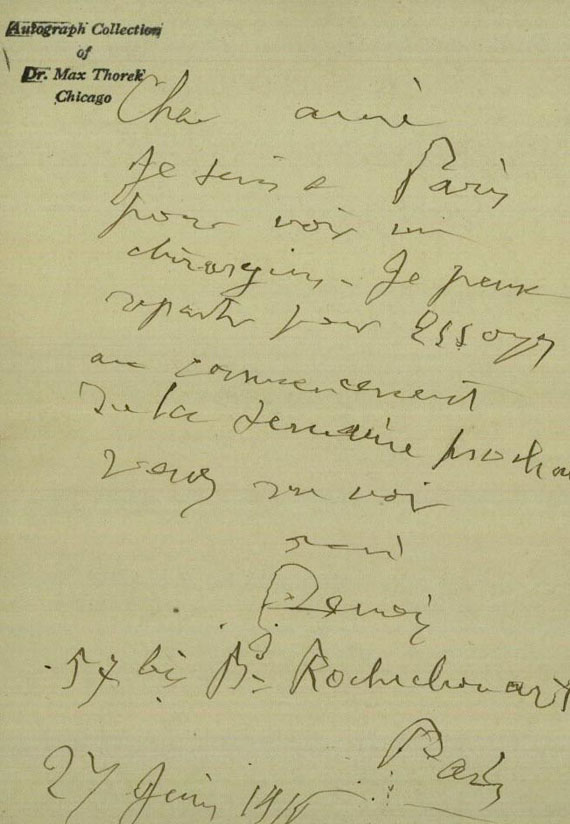 Autograph Collection
of
Dr. Max Thorek
Chicago
Cher ami
Je suis a Paris
pour voir un
chirurgien - Je peux
repartir pour Essoyes
au commencement
de la semaine prochai
venez me voir
ami
Renoir
57 bis Bd Rochechouart
Paris
27 Juin